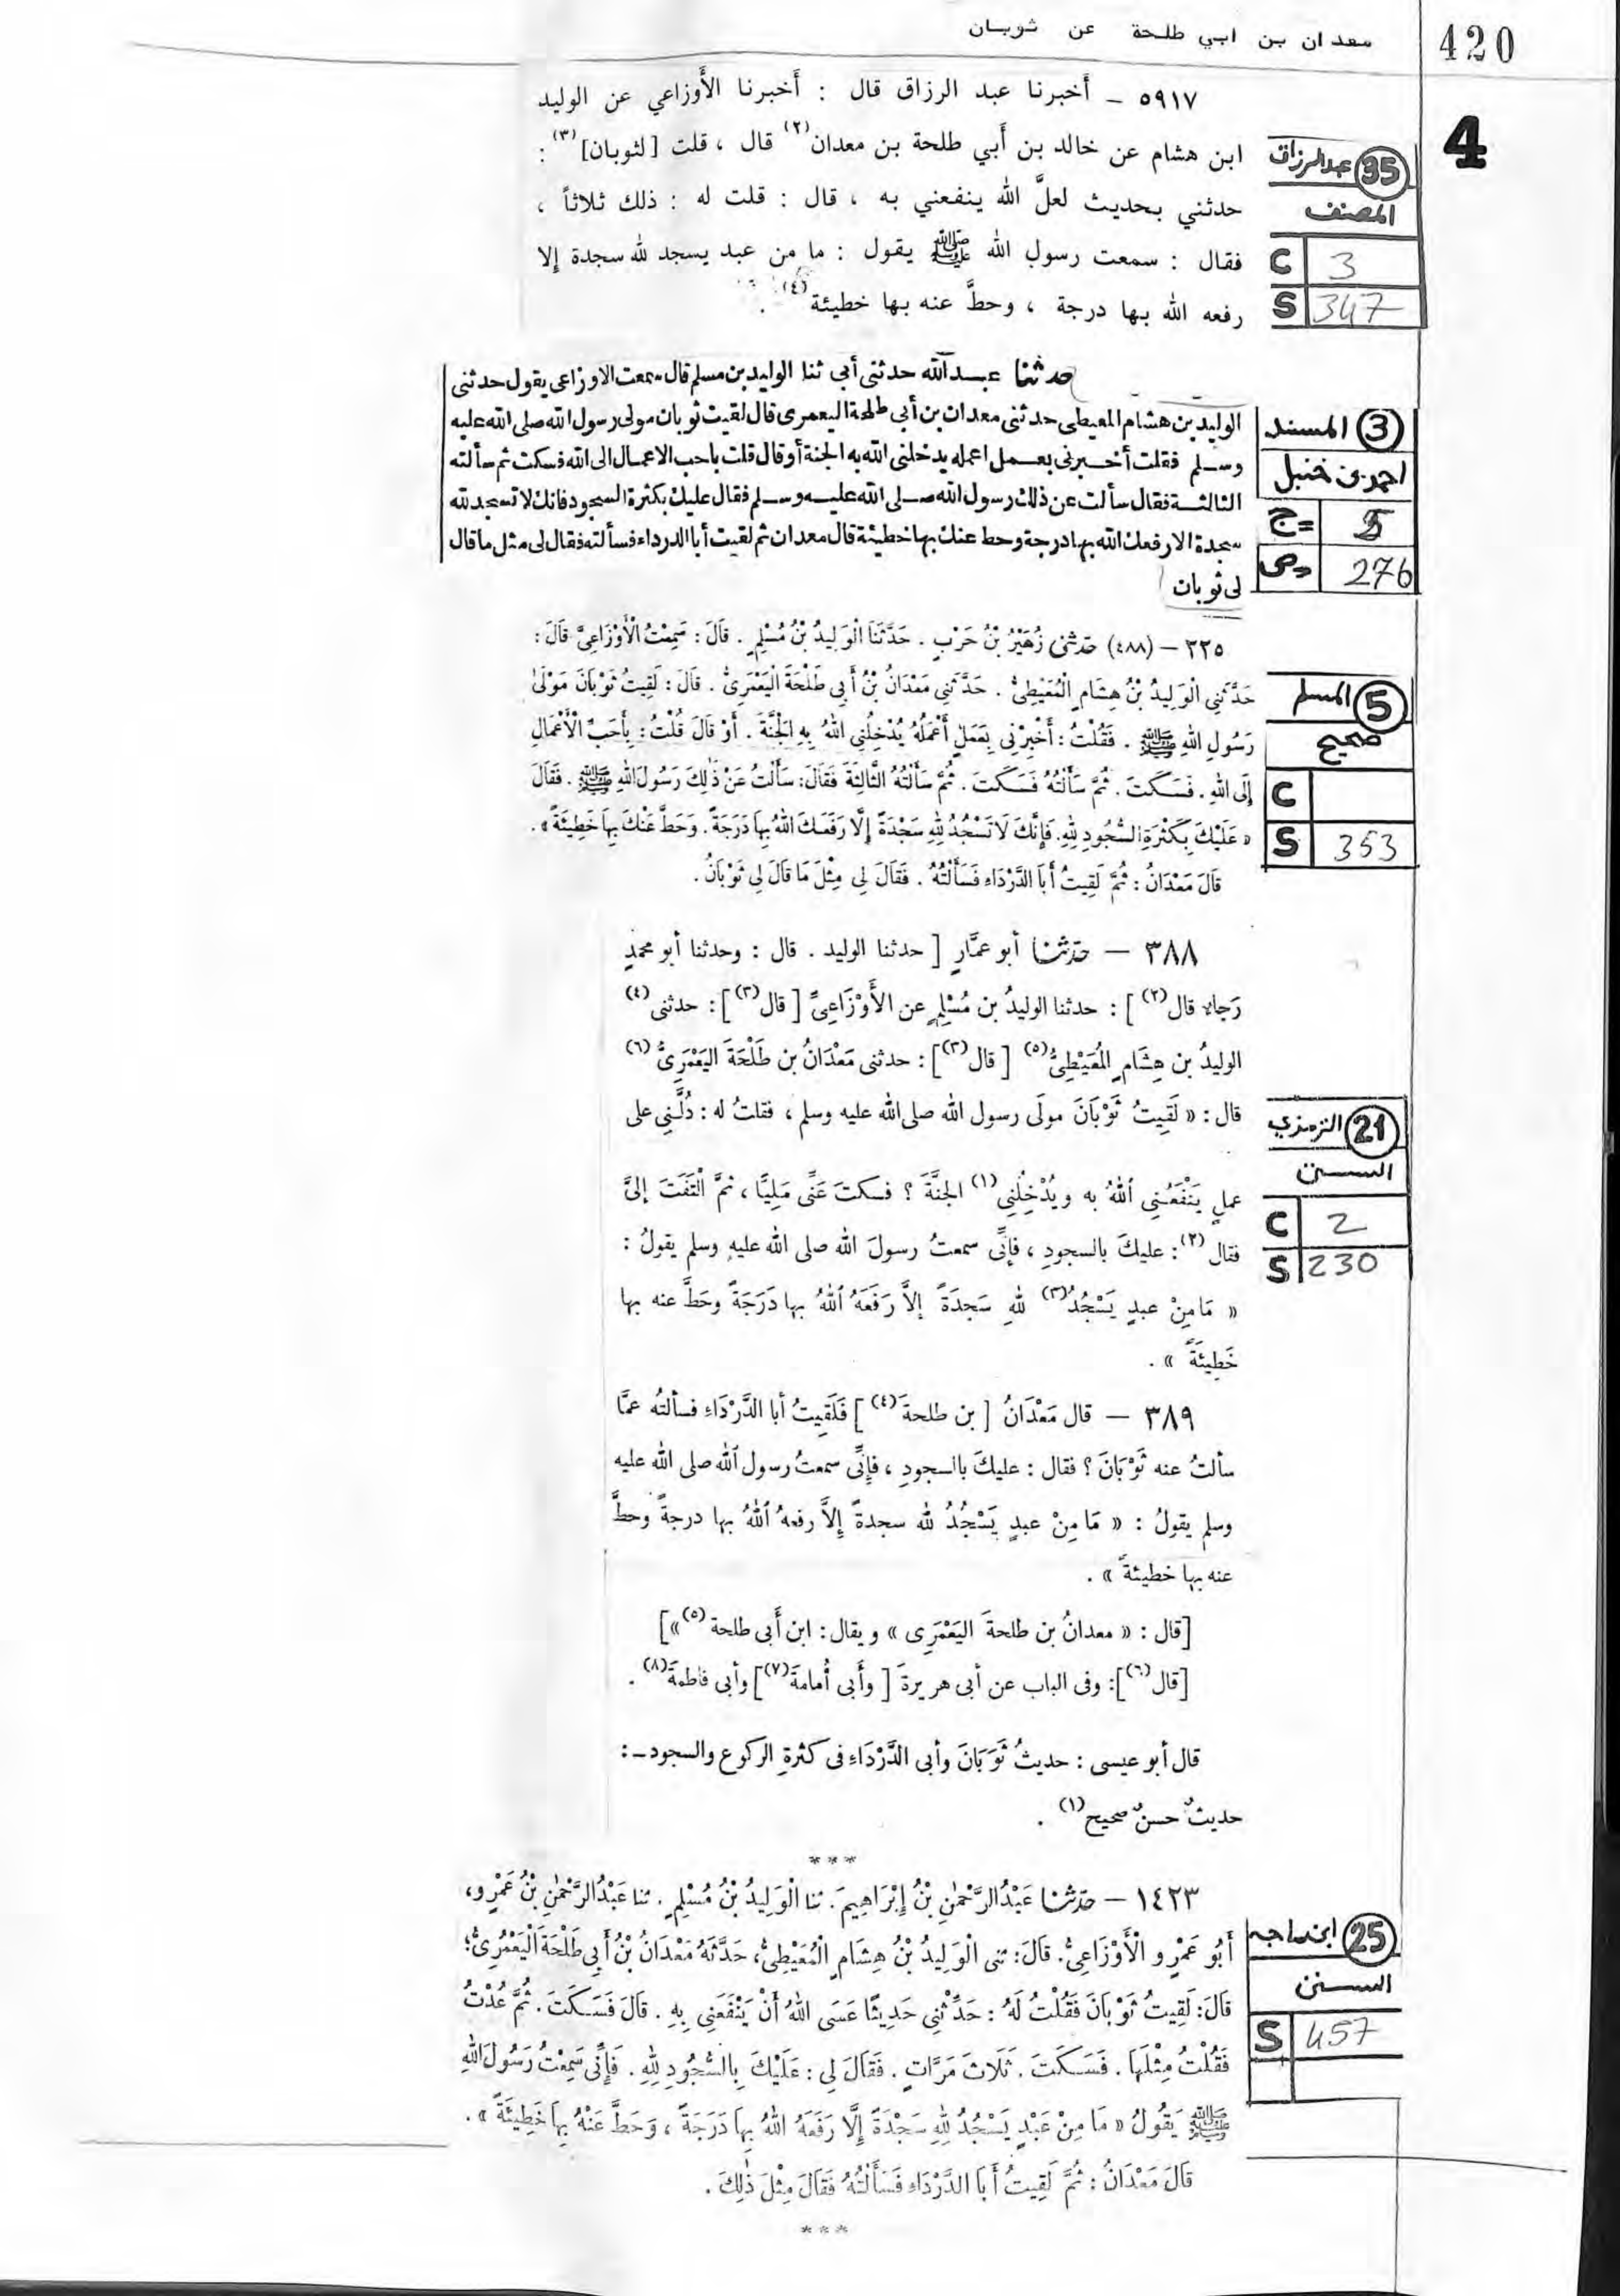 معدان بن ابي طلحة عن ثوبان
420
4
٥٩١٧ – أخبرنا عبد الرزاق قال : أخبرنا الأَوزاعي عن الوليد
ابن هشام عن خالد بن أَبي طلحة بن معدان(٢) قال ، قلت [لثوبان](٣) :
حدثني بحديث لعلَّ الله ينفعني به ، قال : قلت له : ذلك ثلاثاً ،
فقال : سمعت رسول الله ﷺ يقول : ما من عبد يسجد لله سجدة إلا
رفعه الله بها درجة ، وحطَّ عنه بها خطيئة(٤) .
35 عبدالرزاق
المصنف
C 3
S 347
حدثنا عبد الله حدثني أبي ثنا الوليد بن مسلم قال سمعت الاوزاعي يقول حدثني
الوليد بن هشام المعيطى حدثني معدان بن أبي طلحة اليعمرى قال لقيت ثوبان مولى رسول الله صلى الله عليه
وسلم فقلت أخبرني بعمل اعمله يدخلني الله به الجنة أو قال قلت باحب الاعمال الى الله فسكت ثم سألته
الثالثة فقال سألت عن ذلك رسول الله صلى الله عليه وسلم فقال عليك بكثرة السجود فانك لا تسجد لله
سجدة الا رفعك الله بها درجة وحط عنك بها خطيئة قال معدان ثم لقيت أبا الدرداء فسألته فقال لى مثل ما قال
لى ثوبان
3 المسند
احمد بن حنبل
ج= 5
ص= 276
٢٢٥ – (٤٨٨) حَدَّثَنِي زُهَيْرُ بْنُ حَرْبٍ . حَدَّثَنَا الْوَلِيدُ بْنُ مُسْلِمٍ . قَالَ : سَمِعْتُ الْأَوْزَاعِيَّ قَالَ :
حَدَّثَنِي الْوَلِيدُ بْنُ هِشَامٍ الْمُعَيْطِيُّ . حَدَّثَنِي مَعْدَانُ بْنُ أَبِي طَلْحَةَ الْيَعْمَرِيُّ . قَالَ : لَقِيتُ ثَوْبَانَ مَوْلَى
رَسُولِ اللهِ ﷺ . فَقُلْتُ : أَخْبِرْنِي بِعَمَلٍ أَعْمَلُهُ يُدْخِلُنِي اللهُ بِهِ الْجَنَّةَ . أَوْ قَالَ قُلْتُ : بِأَحَبِّ الْأَعْمَالِ
إِلَى اللهِ . فَسَكَتَ . ثُمَّ سَأَلْتُهُ فَسَكَتَ . ثُمَّ سَأَلْتُهُ الثَّالِثَةَ فَقَالَ : سَأَلْتُ عَنْ ذَٰلِكَ رَسُولَ اللهِ ﷺ . فَقَالَ
« عَلَيْكَ بِكَثْرَةِ السُّجُودِ لِلهِ . فَإِنَّكَ لَا تَسْجُدُ لِلهِ سَجْدَةً إِلَّا رَفَعَكَ اللهُ بِهَا دَرَجَةً . وَحَطَّ عَنْكَ بِهَا خَطِيئَةً » .
قَالَ مَعْدَانُ : ثُمَّ لَقِيتُ أَبَا الدَّرْدَاءِ فَسَأَلْتُهُ . فَقَالَ لِي مِثْلَ مَا قَالَ لِي ثَوْبَانُ .
5 المسلم
صحيح
C
S 353
٣٨٨ – حدثنا أبو عمَّارٍ [ حدثنا الوليد . قال : وحدثنا أبو محمدٍ
رَجاء قال(٢) ] : حدثنا الوليدُ بن مُسْلِمٍ عن الأَوْزَاعِيِّ [ قال(٣) ] : حدثنى(٤)
الوليدُ بن هِشَامٍ الْمُعَيْطِيُّ(٥) [ قال(٣) ] : حدثنى مَعْدَانُ بن طَلْحَةَ اليَعْمَرِيُّ(٦)
قال : « لَقِيتُ ثَوْبَانَ مولَى رسول الله صلى الله عليه وسلم ، فقلتُ له : دُلَّنِى على
عملٍ يَنْفَعُنِى اللهُ به ويُدْخِلُنِى(١) الجنَّةَ ؟ فسكتَ عَنِّى مَلِيًّا ، ثمَّ الْتَفَتَ إلىَّ
فقال(٢) : عليكَ بالسجودِ ، فإنِّى سمعتُ رسولَ الله صلى الله عليهِ وسلم يقولُ :
« مَا مِنْ عبدٍ يَسْجُدُ(٣) للهِ سَجدَةً إلاَّ رَفَعَهُ اللهُ بها دَرَجَةً وحَطَّ عنه بها
خَطِيئَةً » .
٣٨٩ – قال مَعْدَانُ [ بن طلحةَ(٤) ] فَلَقِيتُ أبا الدَّرْدَاءِ فسألتُه عمَّا
سألتُ عنه ثَوْبَانَ ؟ فقال : عليكَ بالسجودِ ، فإنِّى سمعتُ رسول الله صلى الله عليه
وسلم يقولُ : « مَا مِنْ عبدٍ يَسْجُدُ لله سجدةً إلاَّ رفعهُ اللهُ بها درجةً وحطَّ
عنه بها خطيئةً » .
[قال : « معدانُ بن طلحةَ اليَعْمَرِى » ويقال : ابن أَبى طلحة(٥) »]
[قال(٦)] : وفى الباب عن أبى هريرةَ [ وأَبى أُمامةَ(٧)] وأبى فاطمةَ(٨) .
قال أبو عيسى : حديثُ ثَوْبَانَ وأبى الدَّرْدَاءِ فى كثرةِ الركوع والسجود – :
حديثٌ حسنٌ صحيح(١) .
21 الترمذي
السنن
C 2
S 230
***
١٤٢٣ – حدثنا عَبْدُ الرَّحْمٰنِ بْنُ إِبْرَاهِيمَ . ثنا الْوَلِيدُ بْنُ مُسْلِمٍ . ثنا عَبْدُ الرَّحْمٰنِ بْنُ عَمْرٍو ،
أَبُو عَمْرٍو الْأَوْزَاعِيُّ . قَالَ : ثنى الْوَلِيدُ بْنُ هِشَامٍ الْمُعَيْطِيُّ ، حَدَّثَهُ مَعْدَانُ بْنُ أَبِي طَلْحَةَ الْيَعْمُرِيُّ ؛
قَالَ : لَقِيتُ ثَوْبَانَ فَقُلْتُ لَهُ : حَدِّثْنِي حَدِيثًا عَسَى اللهُ أَنْ يَنْفَعَنِي بِهِ . قَالَ فَسَكَتَ . ثُمَّ عُدْتُ
فَقُلْتُ مِثْلَهَا . فَسَكَتَ . ثَلَاثَ مَرَّاتٍ . فَقَالَ لِي : عَلَيْكَ بِالسُّجُودِ لِلهِ . فَإِنِّي سَمِعْتُ رَسُولَ اللهِ
ﷺ يَقُولُ « مَا مِنْ عَبْدٍ يَسْجُدُ لِلهِ سَجْدَةً إِلَّا رَفَعَهُ اللهُ بِهَا دَرَجَةً ، وَحَطَّ عَنْهُ بِهَا خَطِيئَةً » .
قَالَ مَعْدَانُ : ثُمَّ لَقِيتُ أَبَا الدَّرْدَاءِ فَسَأَلْتُهُ فَقَالَ مِثْلَ ذَٰلِكَ .
25 ابن ماجه
السنن
S 457
***